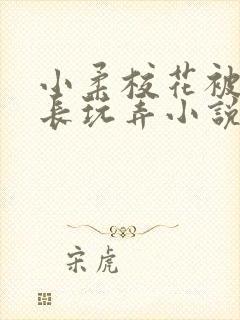 小柔校花被
长玩弄小説
宋虎